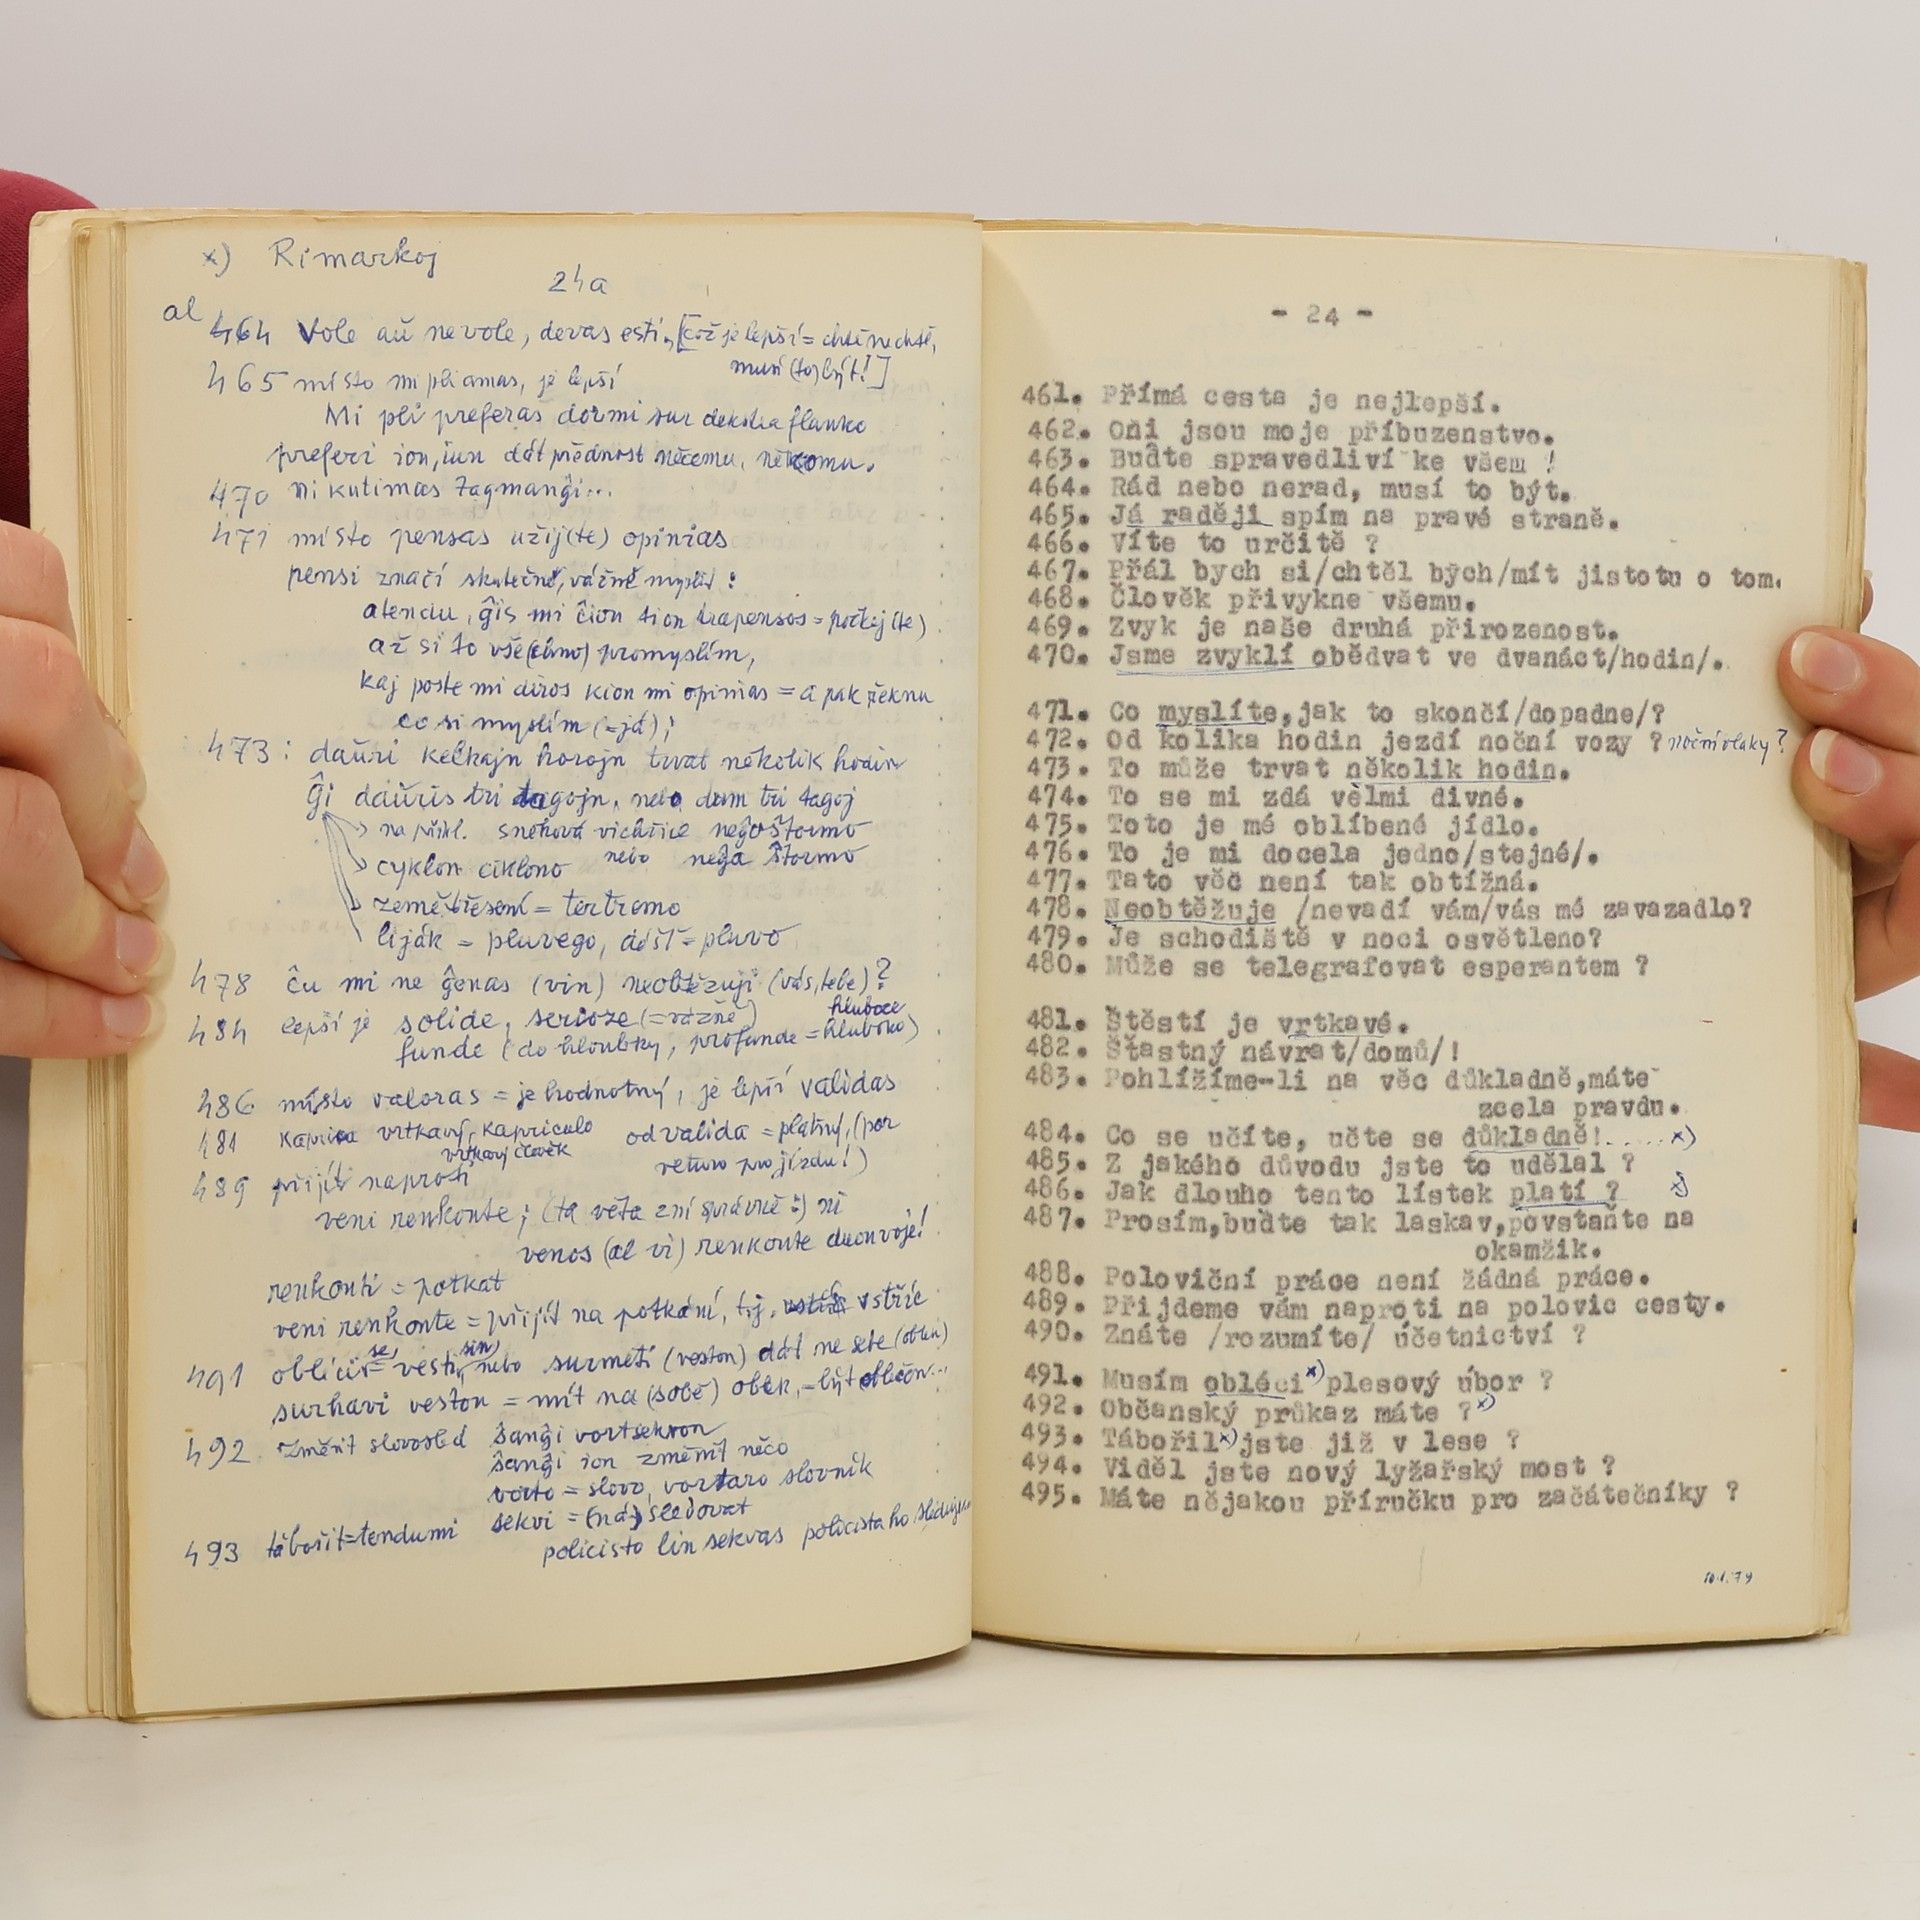 x) Rimarkoj
24a
al 464 Vole aŭ nevole, devas esti, [což je lepší = chtě nechtě,
musí (to) být!]
465 místo mi pli amas, je lepší
Mi pli preferas dormi sur dekstra flanko
preferi ion, iun dát přednost něčemu, někomu.
470 ni kutimas tagmanĝi...
471 místo pensas užij(te) opinias
pensi značí skutečně, vážně myslit:
atendu, ĝis mi ĉion tion trapensos = počkej(te)
až si to vše(chno) promyslím,
kaj poste mi diros kion mi opinias = a pak řeknu
co si myslím (=já);
473: daŭri kelkajn horojn trvat několik hodin
Ĝi daŭris tri tagojn, nebo dum tri tagoj
na přikl. sněhová vichřice neĝoŝtormo
cyklon ciklono nebo neĝa ŝtormo
zemětřesení = tertremo
liják = pluvego, déšť = pluvo
478 ĉu mi ne ĝenas (vin) neobtěžuji (vás, tebe)?
484 lepší je solide, serioze (=vážně) hluboce
funde (do hloubky, profunde = hluboko)
486 místo valoras = je hodnotný, je lepší validas
481 kaprica vrtkavý, kapriculo od valida = platný, (por
vrtkavý člověk veturo pro jízdu!)
489 přijít naproti
veni renkonte; (ta věta zní správně:) ni
venos (al vi) renkonte duonvoje!
renkonti = potkat
veni renkonte = přijít na potkání, tj. vstříc
491 obléci se = vesti sin, nebo surmeti (veston) dát na sebe (oblek)
surhavi veston = mít na (sobě) oblek, = být oblečen...
492 změnit slovosled ŝanĝi vortsekvon
ŝanĝi ion změnit něco
vorto = slovo, vortaro slovník
sekvi = (ná) sledovat
493 tábořit = tendumi policisto lin sekvas policista ho sleduje
- 24 -
461. Přímá cesta je nejlepší.
462. Oni jsou moje příbuzenstvo.
463. Buďte spravedliví ke všem !
464. Rád nebo nerad, musí to být.
465. Já raději spím na pravé straně.
466. Víte to určitě ?
467. Přál bych si/chtěl bych/mít jistotu o tom.
468. Člověk přivykne všemu.
469. Zvyk je naše druhá přirozenost.
470. Jsme zvyklí obědvat ve dvanáct/hodin/.
471. Co myslíte,jak to skončí/dopadne/?
472. Od kolika hodin jezdí noční vozy ? noční vlaky?
473. To může trvat několik hodin.
474. To se mi zdá velmi divné.
475. Toto je mé oblíbené jídlo.
476. To je mi docela jedno/stejné/.
477. Tato věc není tak obtížná.
478. Neobtěžuje /nevadí vám/vás mé zavazadlo?
479. Je schodiště v noci osvětleno?
480. Může se telegrafovat esperantem ?
481. Štěstí je vrtkavé.
482. Šťastný návrat/domů/!
483. Pohlížíme-li na věc důkladně,máte
zcela pravdu.
484. Co se učíte, učte se důkladně!.....x)
485. Z jakého důvodu jste to udělal ?
486. Jak dlouho tento lístek platí ? x)
487. Prosím,buďte tak laskav,povstaňte na
okamžik.
488. Poloviční práce není žádná práce.
489. Přijdeme vám naproti na polovic cesty.
490. Znáte /rozumíte/ účetnictví ?
491. Musím obléci x) plesový úbor ?
492. Občanský průkaz máte ? x)
493. Tábořil x) jste již v lese ?
494. Viděl jste nový lyžařský most ?
495. Máte nějakou příručku pro začátečníky ?
10.1.79